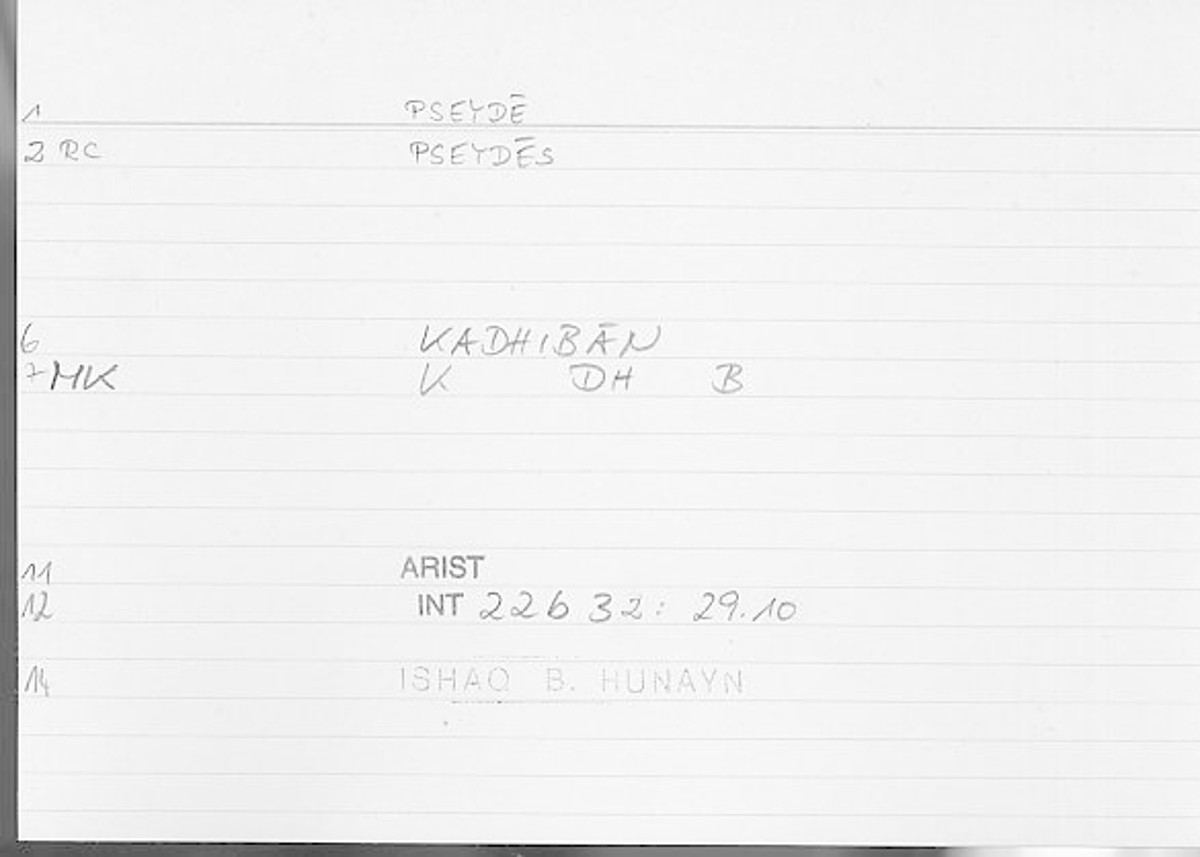 1 PSEYDĒ
2 RC PSEYDĒS
6 KADHIBĀN
7 MK K DH B
11 ARIST
12 INT 226 32: 29.10
14 ISHAQ B. HUNAYN